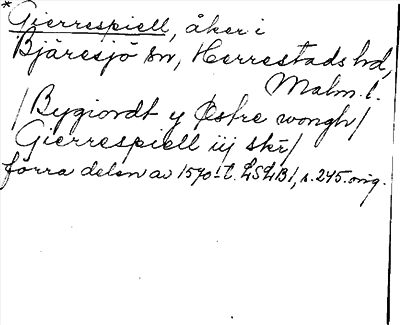 *Gierrespiell, åker i
Bjäresjö sn, Herrestads hd,
Malm. l.
/Bygiordt y Østre wongh/
Gierrespiell iij skr/
förra delen av 1570-t. LSLB1, s. 245. orig.